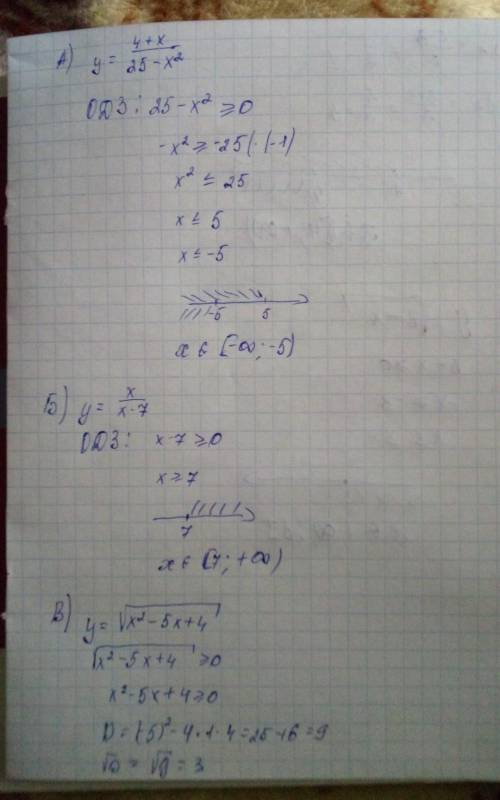 А) y = (4+x)/(25-x²)
ОДЗ: 25-x² ≥ 0
-x² ≥ -25 | · (-1)
x² ≤ 25
x ≤ 5
x ≤ -5
-5 5
x ∈ [-∞; -5)
Б) y = x/(x-7)
ОДЗ: x-7 ≥ 0
x ≥ 7
7
x ∈ [7; +∞)
В) y = √(x²-5x+4)
√(x²-5x+4) ≥ 0
x²-5x+4 ≥ 0
D = (-5)² - 4·1·4 = 25-16 = 9
√D = √9 = 3